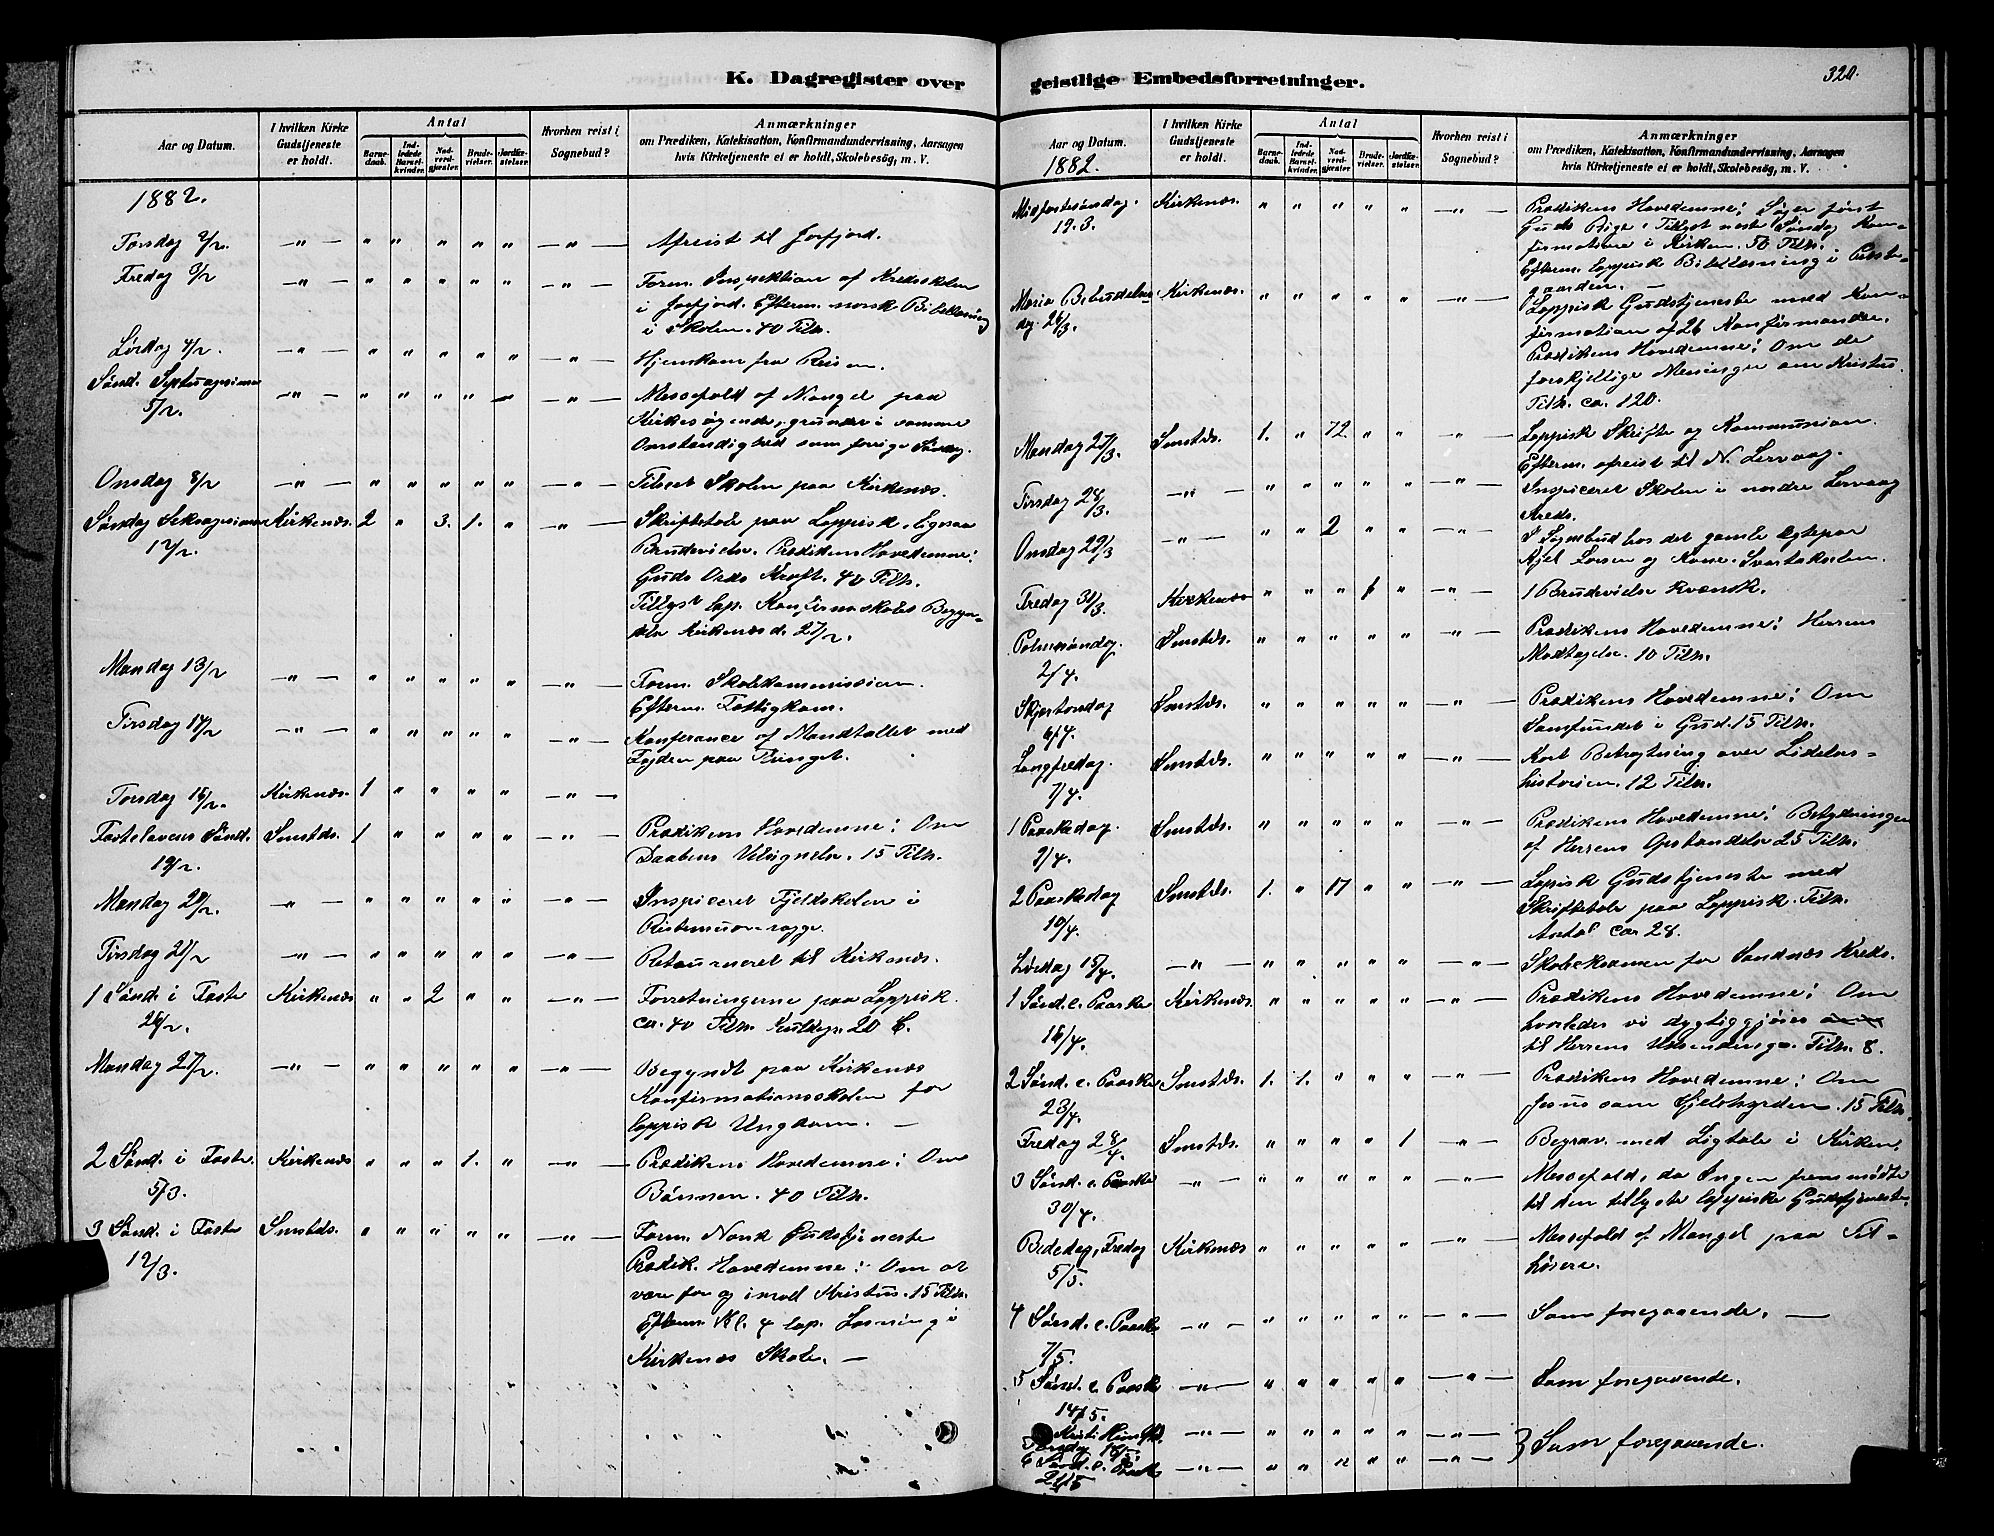 K. Dagregister over
geistlige Embedsforretninger.
320.
Aar og Datum.
I hvilken Kirke
Gudstjeneste
er holdt.
Antal
Barne-
daab.
Ind-
ledede
Barsel-
kvinder.
Nad-
verd-
gjester.
Brude-
vielser.
Jordfæ-
stelser.
Hvorhen reist i
Sognebud?
Anmærkninger
om Prædiken, Katekisation, Konfirmandundervisning, Aarsagen
hvis Kirketjeneste ei er holdt, Skolebesøg, m. V.
1882.
Torsdag 2/2. Afreist til Jarfjord.
Fredag 3/2 Form. Inspektion af Kredsskolen
i Jarfjord. Efterm. norsk Bibellæsning
i Skolen. 40 Tilh.
Lørdag 4/2. Hjemkom fra Reisen.
Sønd. Septuagesima Messefald af Mangel paa
5/2. Kirkesøgende, grundet i samme
Omstændighed som forige Søndag.
Onsdag 8/2 Tilseet Skolen paa Kirkenæs.
Søndag Seksagesima Kirkenæs. 2 " 3. 1. " Skriftetale paa Lappisk. Ogsaa
12/2. Brudevielse. Prædikens Hovedemne:
Guds Ords Kraft. 40 Tilh.
Tillyst lap. Konfirm.skoles Begyn-
delse Kirkenæs d. 27/2.
Mandag 13/2 Form. Skolekommission.
Efterm. Fattigkom.
Tirsdag 14/2 Konferance af Mandtallet med
Fogden paa Thinget.
Torsdag 16/2. Kirkenæs. 1
Fastelavens Sønd. Smstds. 1 Prædikens Hovedemne: Om
19/2. Daabens Velsignelse. 15 Tilh.
Mandag 20/2. Inspiceret Fjeldskolen i
Tirsdag 21/2 Retourneret til Kirkenæs.
1 Sønd. i Faste Kirkenæs " " 2 " " Forretningerne paa Lappisk.
26/2. ca. 40 Tilh. Kuldegr. 20 C.
Mandag 27/2. Begyndt paa Kirkenæs
Konfirmationsskolen for
lappisk Ungdom. —
2 Sønd. i Faste. Kirkenæs " " " 1. " Prædikens Hovedemne: Om
5/3. Bønnen. 40 Tilh.
3 Sønd. i Faste Smstds. Form. Norsk Gudstjeneste
12/3. Prædik. Hovedemne: Om at
være for og imod Kristus. 15 Tilh.
Efterm. Kl. 4 lap. Læsning i
Kirkenæs Skole. —
Aar og Datum.
1882.
I hvilken Kirke
Gudstjeneste
er holdt.
Antal
Barne-
daab.
Ind-
ledede
Barsel-
kvinder.
Nad-
verd-
gjester.
Brude-
vielser.
Jordfæ-
stelser.
Hvorhen reist i
Sognebud?
Anmærkninger
om Prædiken, Katekisation, Konfirmandundervisning, Aarsagen
hvis Kirketjeneste ei er holdt, Skolebesøg, m. V.
Midfastesøndag. Kirkenæs. Prædikens Hovedemne: Søger først
19.3. Guds Rige. Tillyst næste Søndag Kon-
firmation i Kirken. 50 Tilh.
Efterm. lappisk Bibellæsning i Præste-
gaarden. —
Maria Bebudelses Kirkenæs. Lappisk Gudstjeneste med Kon-
dag. 26/3. firmation af 26 Konfirmander.
Prædikens Hovedemne: Om de
forskjellige Meninger om Kristus.
Tilh. ca. 120.
Mandag 27/3 Smstds. 1. " 72 " " Lappisk Skrifte og Kommunion.
Efterm. afreist til N. Lervaag.
Tirsdag 28/3. Inspiceret Skolen i nordre Lervaag
Kreds.
Onsdag 29/3 " " 2 " " I Sognebud hos det gamle Egtepar
Kjel Larsen og Kone
Fredag 31/3. Kirkenæs 1 1 Brudevielse Kvænsk.
Palmesøndag. Smstds. Prædikens Hovedemne: Herrens
2/4. Modtagelse. 10 Tilh.
Skjærtorsdag Smstds. Prædikens Hovedemne: Om
6/4. Samfundet i Gud. 15 Tilh.
Langfredag. Smstds. Kort Betragtning over Lidelses-
7/4. historien. 12 Tilh.
1 Paaskedag. Smstds. Prædikens Hovedemne: Betydningen
9/4. af Herrens Opstandelse 25 Tilh.
2 Paaskedag Smstds. 1. " 17 " " Lapisk Gudstjeneste med
10/4. Skriftetale paa Lappisk. Tilh.
Antal ca 28.
Lørdag 15/4. Skoleeksamen for Sandnæs Kreds.
1 Sønd. e. Paaske Kirkenæs. Prædikens Hovedemne: Om
16/4. hvorledes vi dygtiggjøres
til Herrens Udsendinge. Tilh. 8.
2 Sønd. e. Paaske Smstds. 1. 1. " " " Prædikens Hovedemne: Om
23/4. Jesus som Sjelehyrden. 15 Tilh.
Fredag 28/4. Smstds. " " " " 1 Begrav. med Ligtale i Kirken.
3 Sønd. e. Paaske Messefald, da Ingen fremmødte
30/4. til den tillyste lappiske Gudstjeneste.
Bededag, Fredag Kirkenæs Messefald af Mangel paa Til-
5/5. hørere.
4 Sønd. e. Paaske Som foregaaende. —
7/5.
5 Sønd. e. Paaske Som foregaaende.
14/5.
Kristi Himfdg.
Torsdag 18/5. } Som foregaaende.
6 Sønd. e. Paaske
21/5